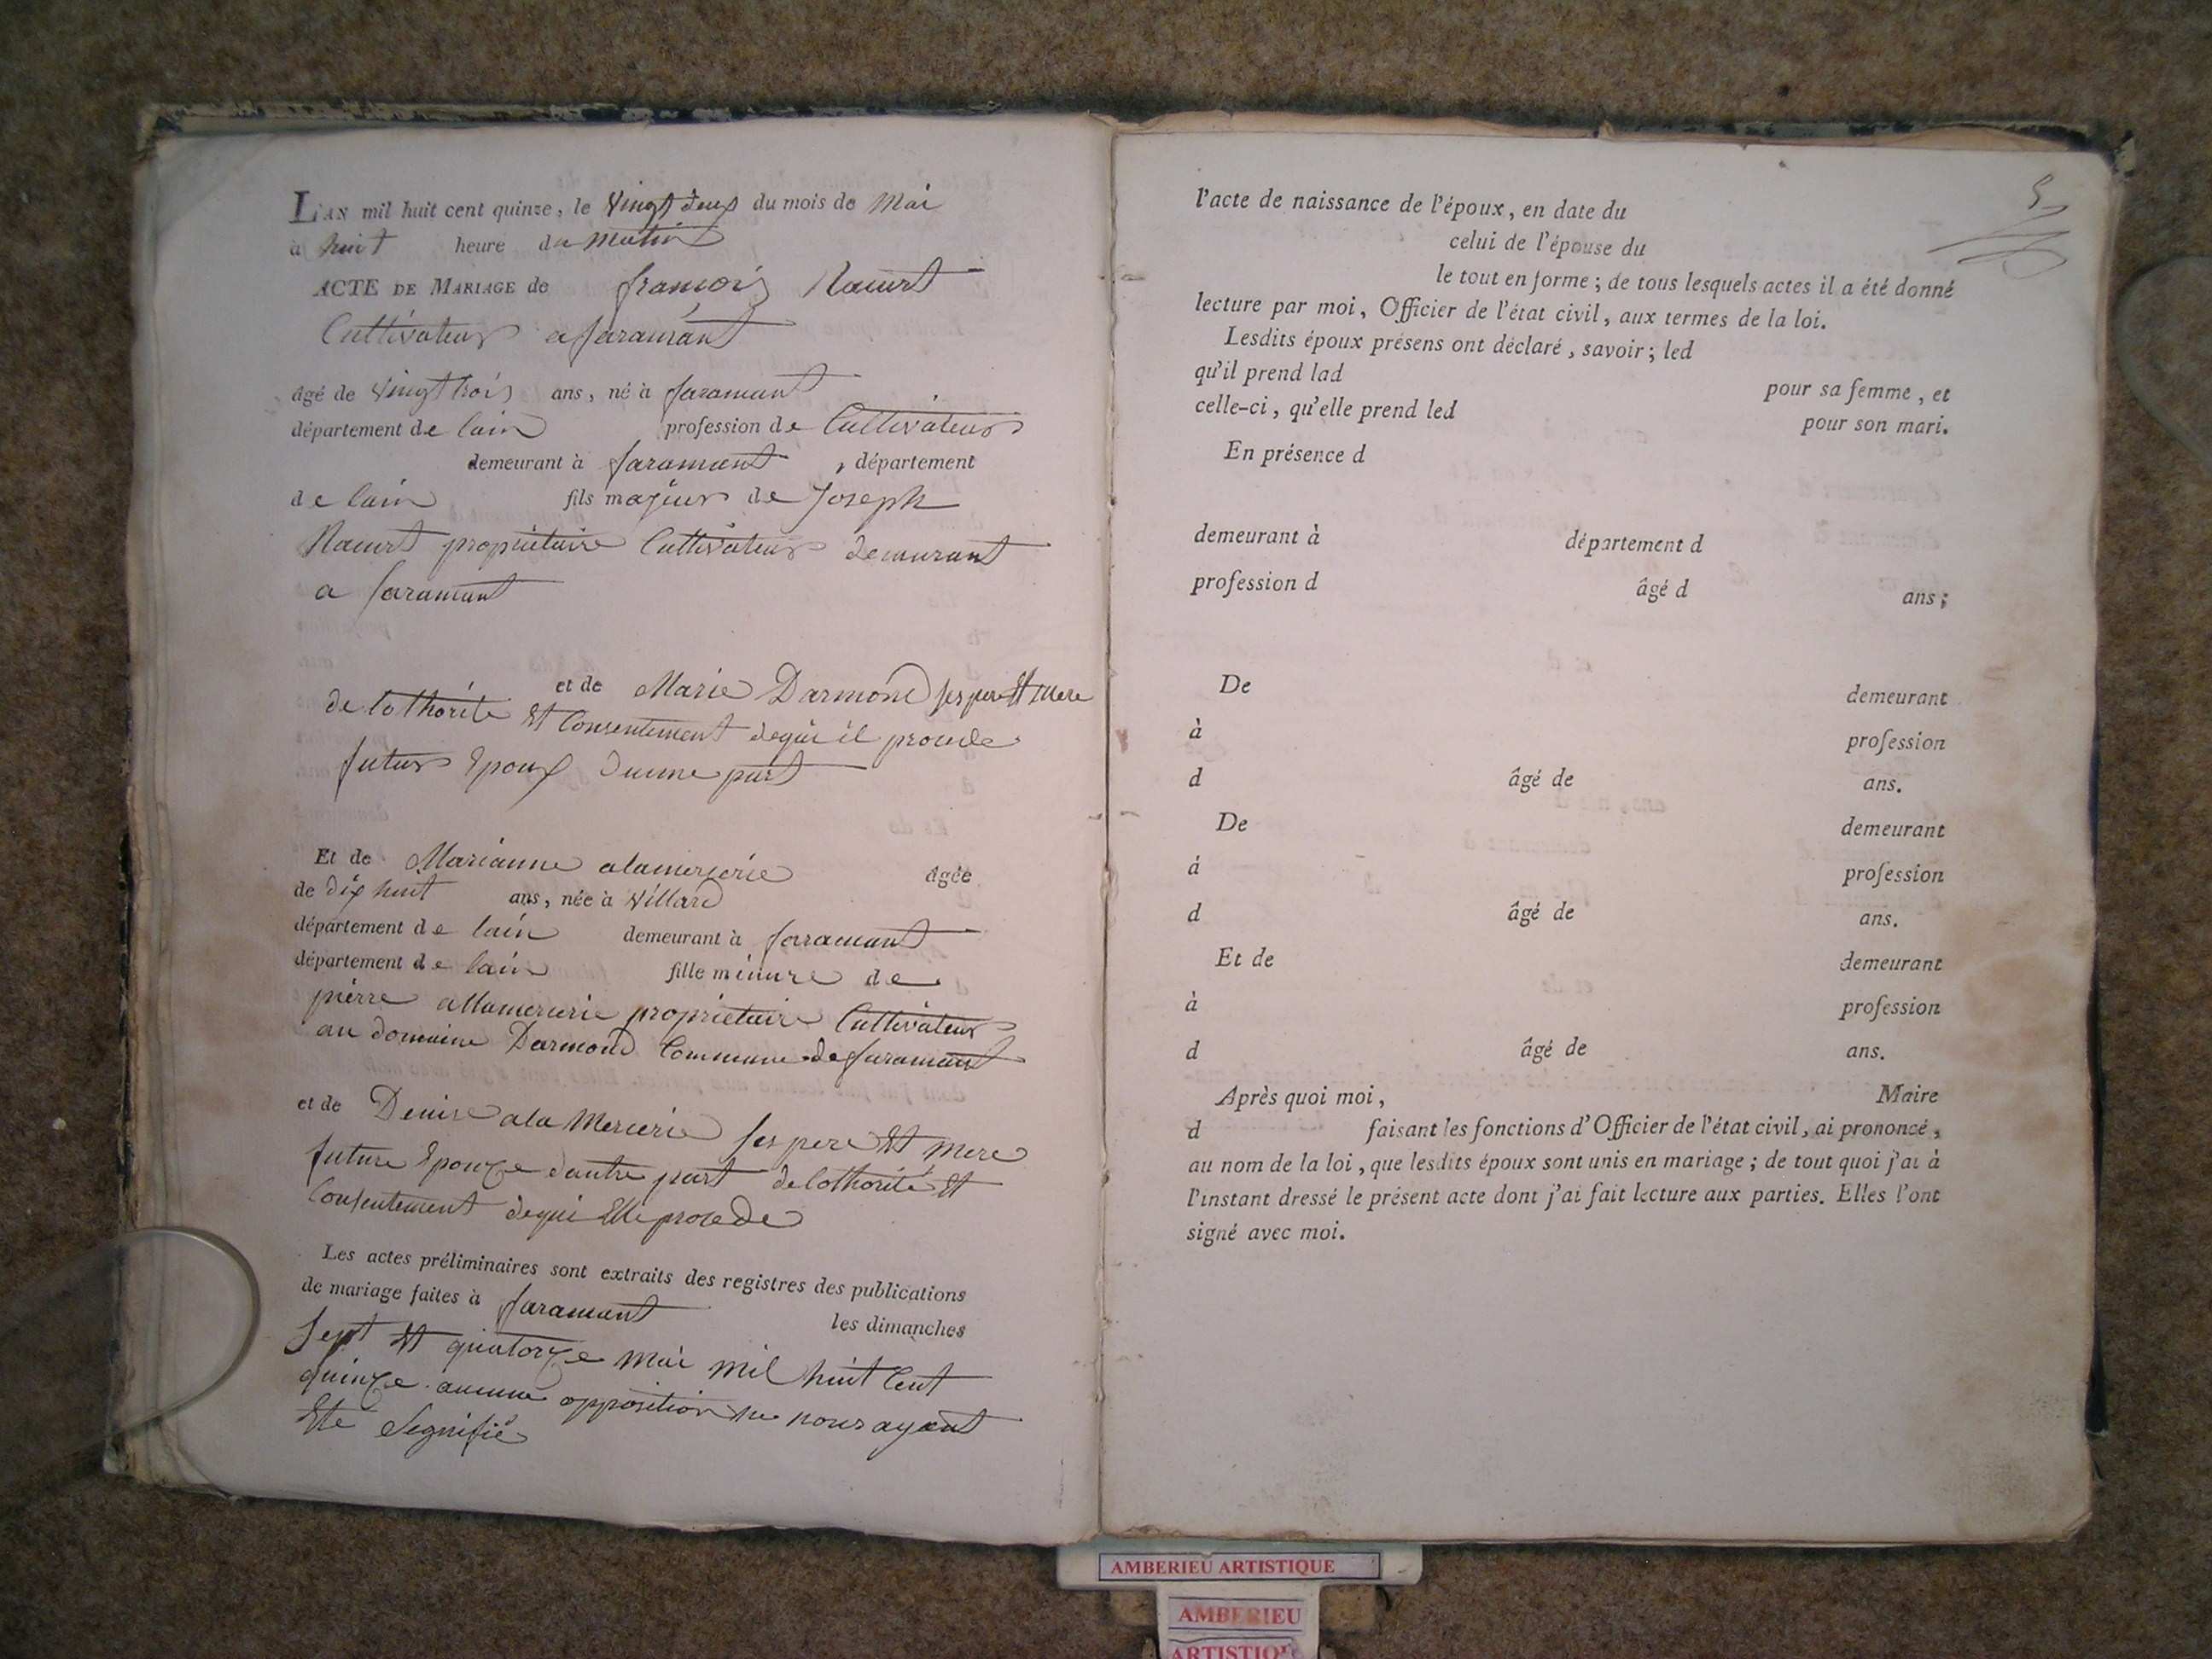 L'AN mil huit cent quinze, le Vingt deux du mois de Mai
a huit heure du Matin
ACTE DE MARIAGE de françois
Cultivateur a faramant
âgé de Vingt trois ans, né à faramant
département de lain profession de Cultivateur
demeurant à faramant, département
de lain fils majeur de Joseph
propriétaire Cultivateur demeurant
a faramant
et de Marie Darmond ses pere Et Mere
de lothorité Et Consentement dequi il procede
futur Epoux dunne part
Et de Marianne alamercerie âgée
de dix huit ans, née à Villard
département de lain demeurant à faramant
département de lain fille minure de
pierre allamercerie propriétaire Cultivateur
au domaine Darmond Commune de faramant
et de Denise ala Mercerie ses pere Et mere
future Epouze dautre part de lothorité Et
Consentement dequi Elle procede
Les actes préliminaires sont extraits des registres des publications
de mariage faites à faramant les dimanches
Sept Et quatorze mai mil huit Cent
quinze aucune opposition ne nous ayant
Ete Signifié
5
l'acte de naissance de l'époux, en date du
celui de l'épouse du
le tout en forme; de tous lesquels actes il a été donné
lecture par moi, Officier de l'état civil, aux termes de la loi.
Lesdits époux présens ont déclaré, savoir; led
qu'il prend lad pour sa femme, et
celle-ci, qu'elle prend led pour son mari.
En présence d
demeurant à département d
profession d âgé d ans;
De demeurant
à profession
d âgé de ans.
De demeurant
à profession
d âgé de ans.
Et de demeurant
à profession
d âgé de ans.
Après quoi moi, Maire
d faisant les fonctions d'Officier de l'état civil, ai prononcé,
au nom de la loi, que lesdits époux sont unis en mariage; de tout quoi j'ai à
l'instant dressé le présent acte dont j'ai fait lecture aux parties. Elles l'ont
signé avec moi.
AMBERIEU ARTISTIQUE
AMBERIEU
ARTISTIQUE